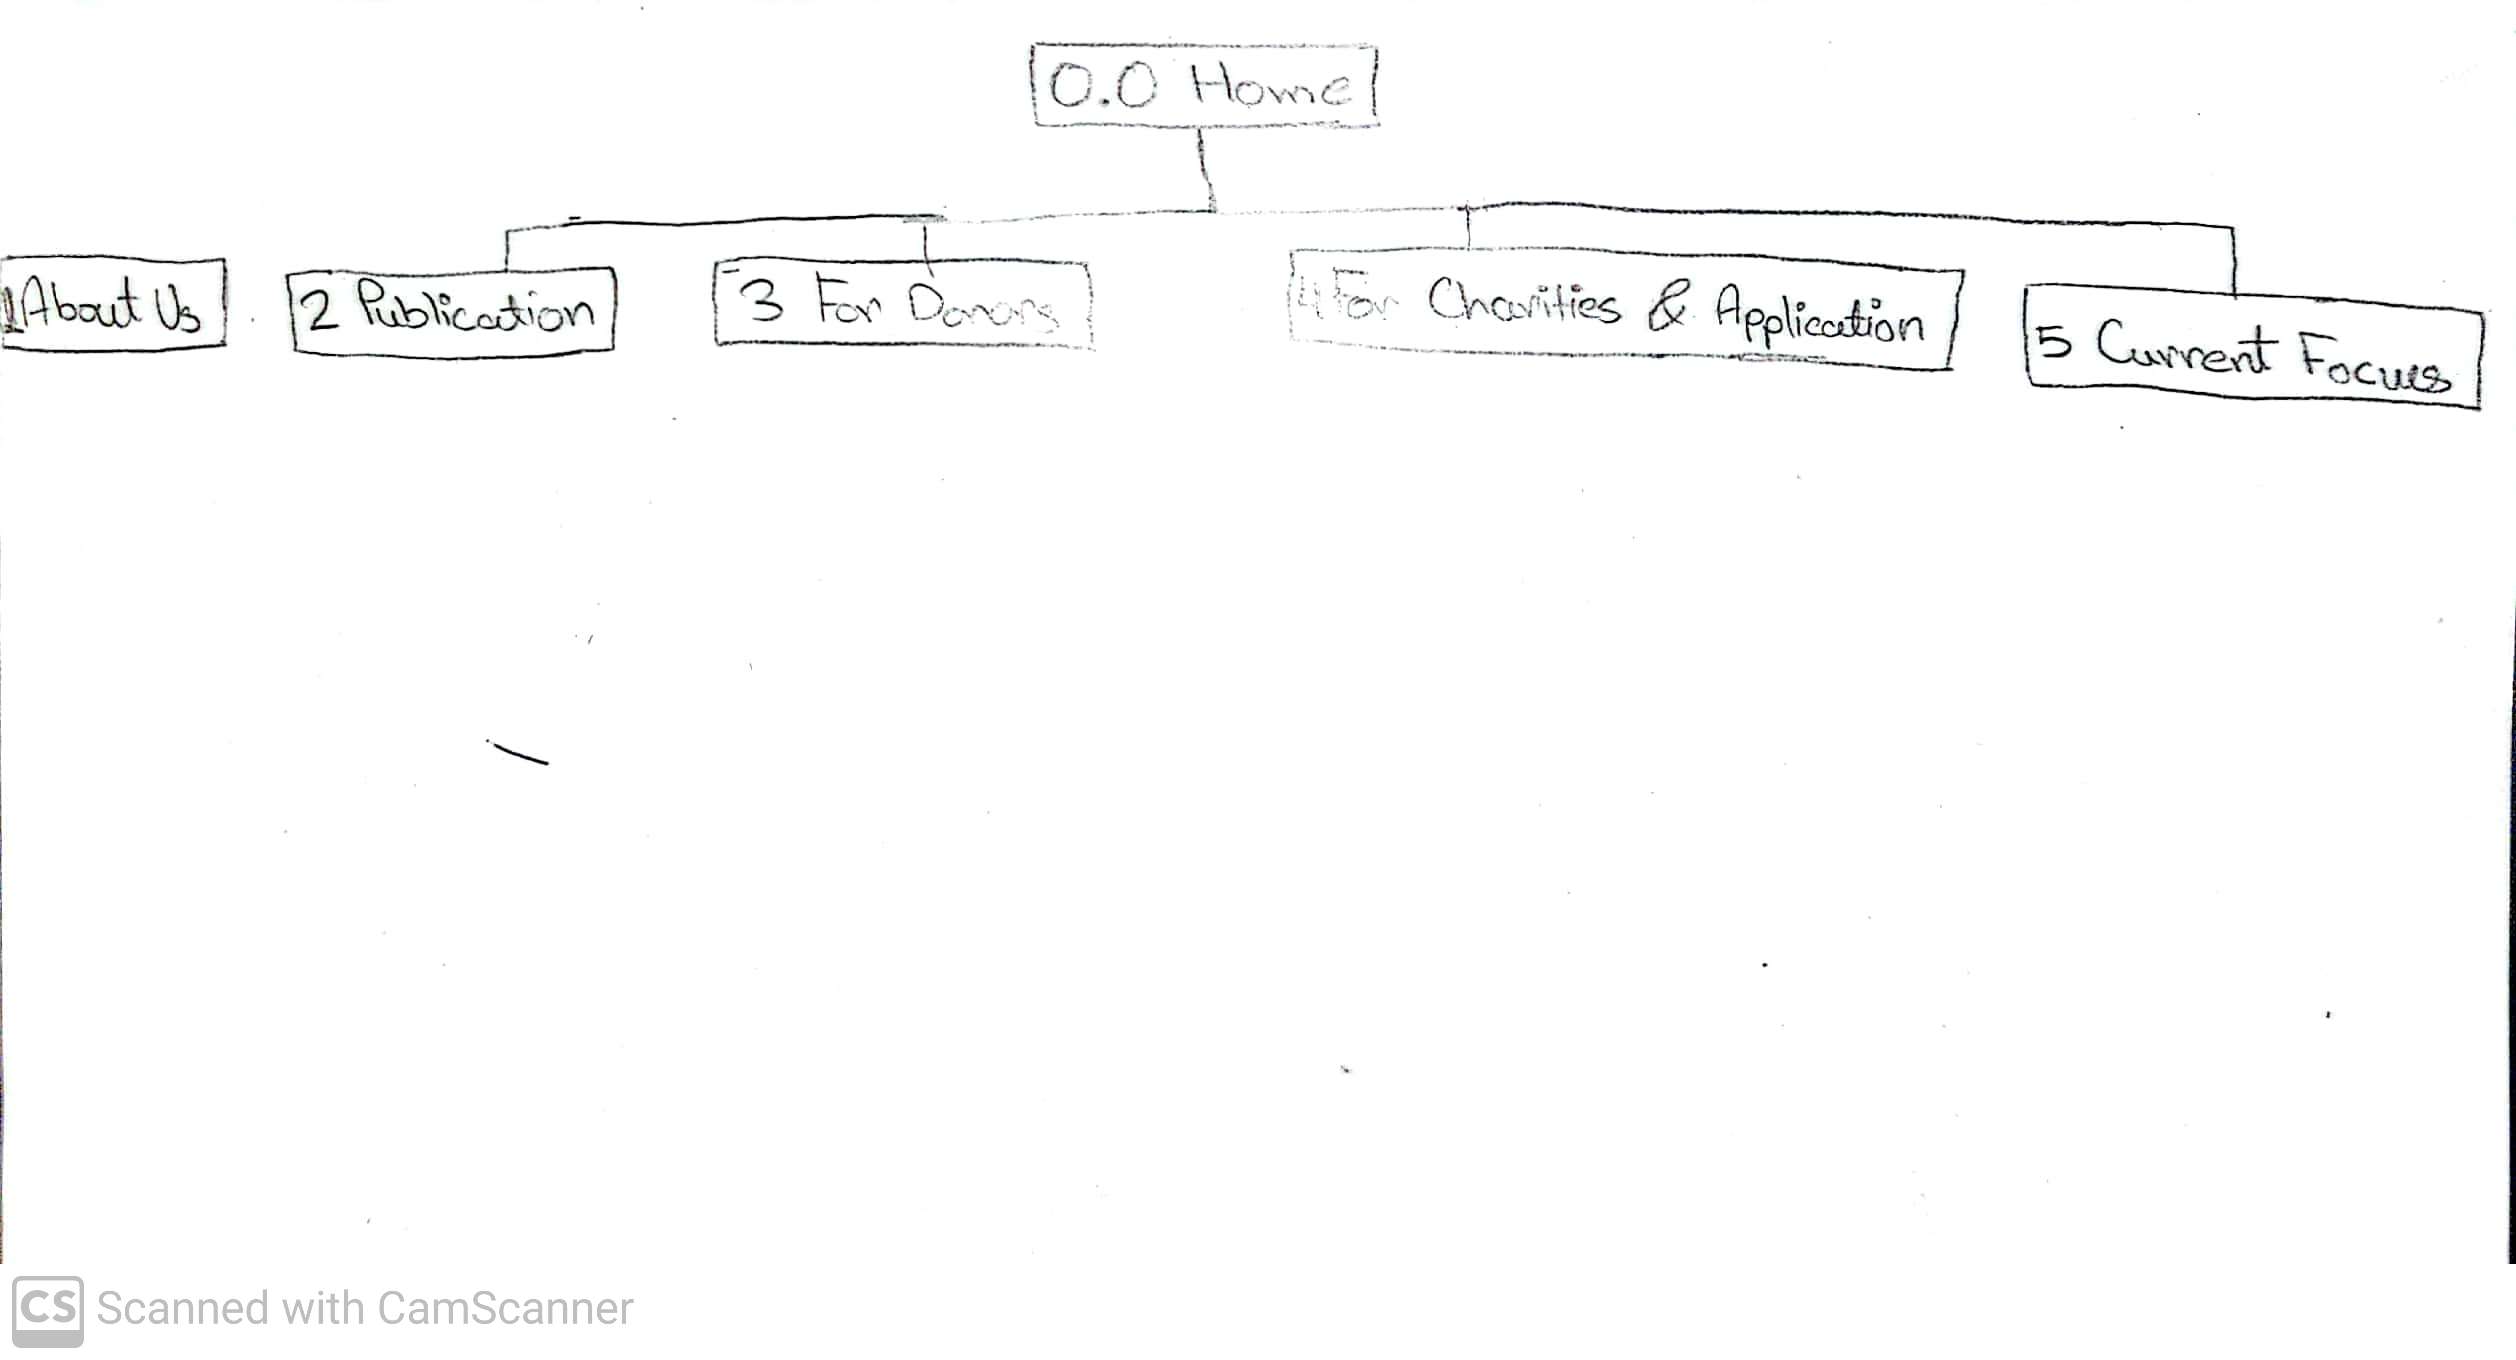 0.0 Home
1 About Us
2 Publication
3 For Donors
4 For Charities & Application
5 Current Focus
CS Scanned with CamScanner